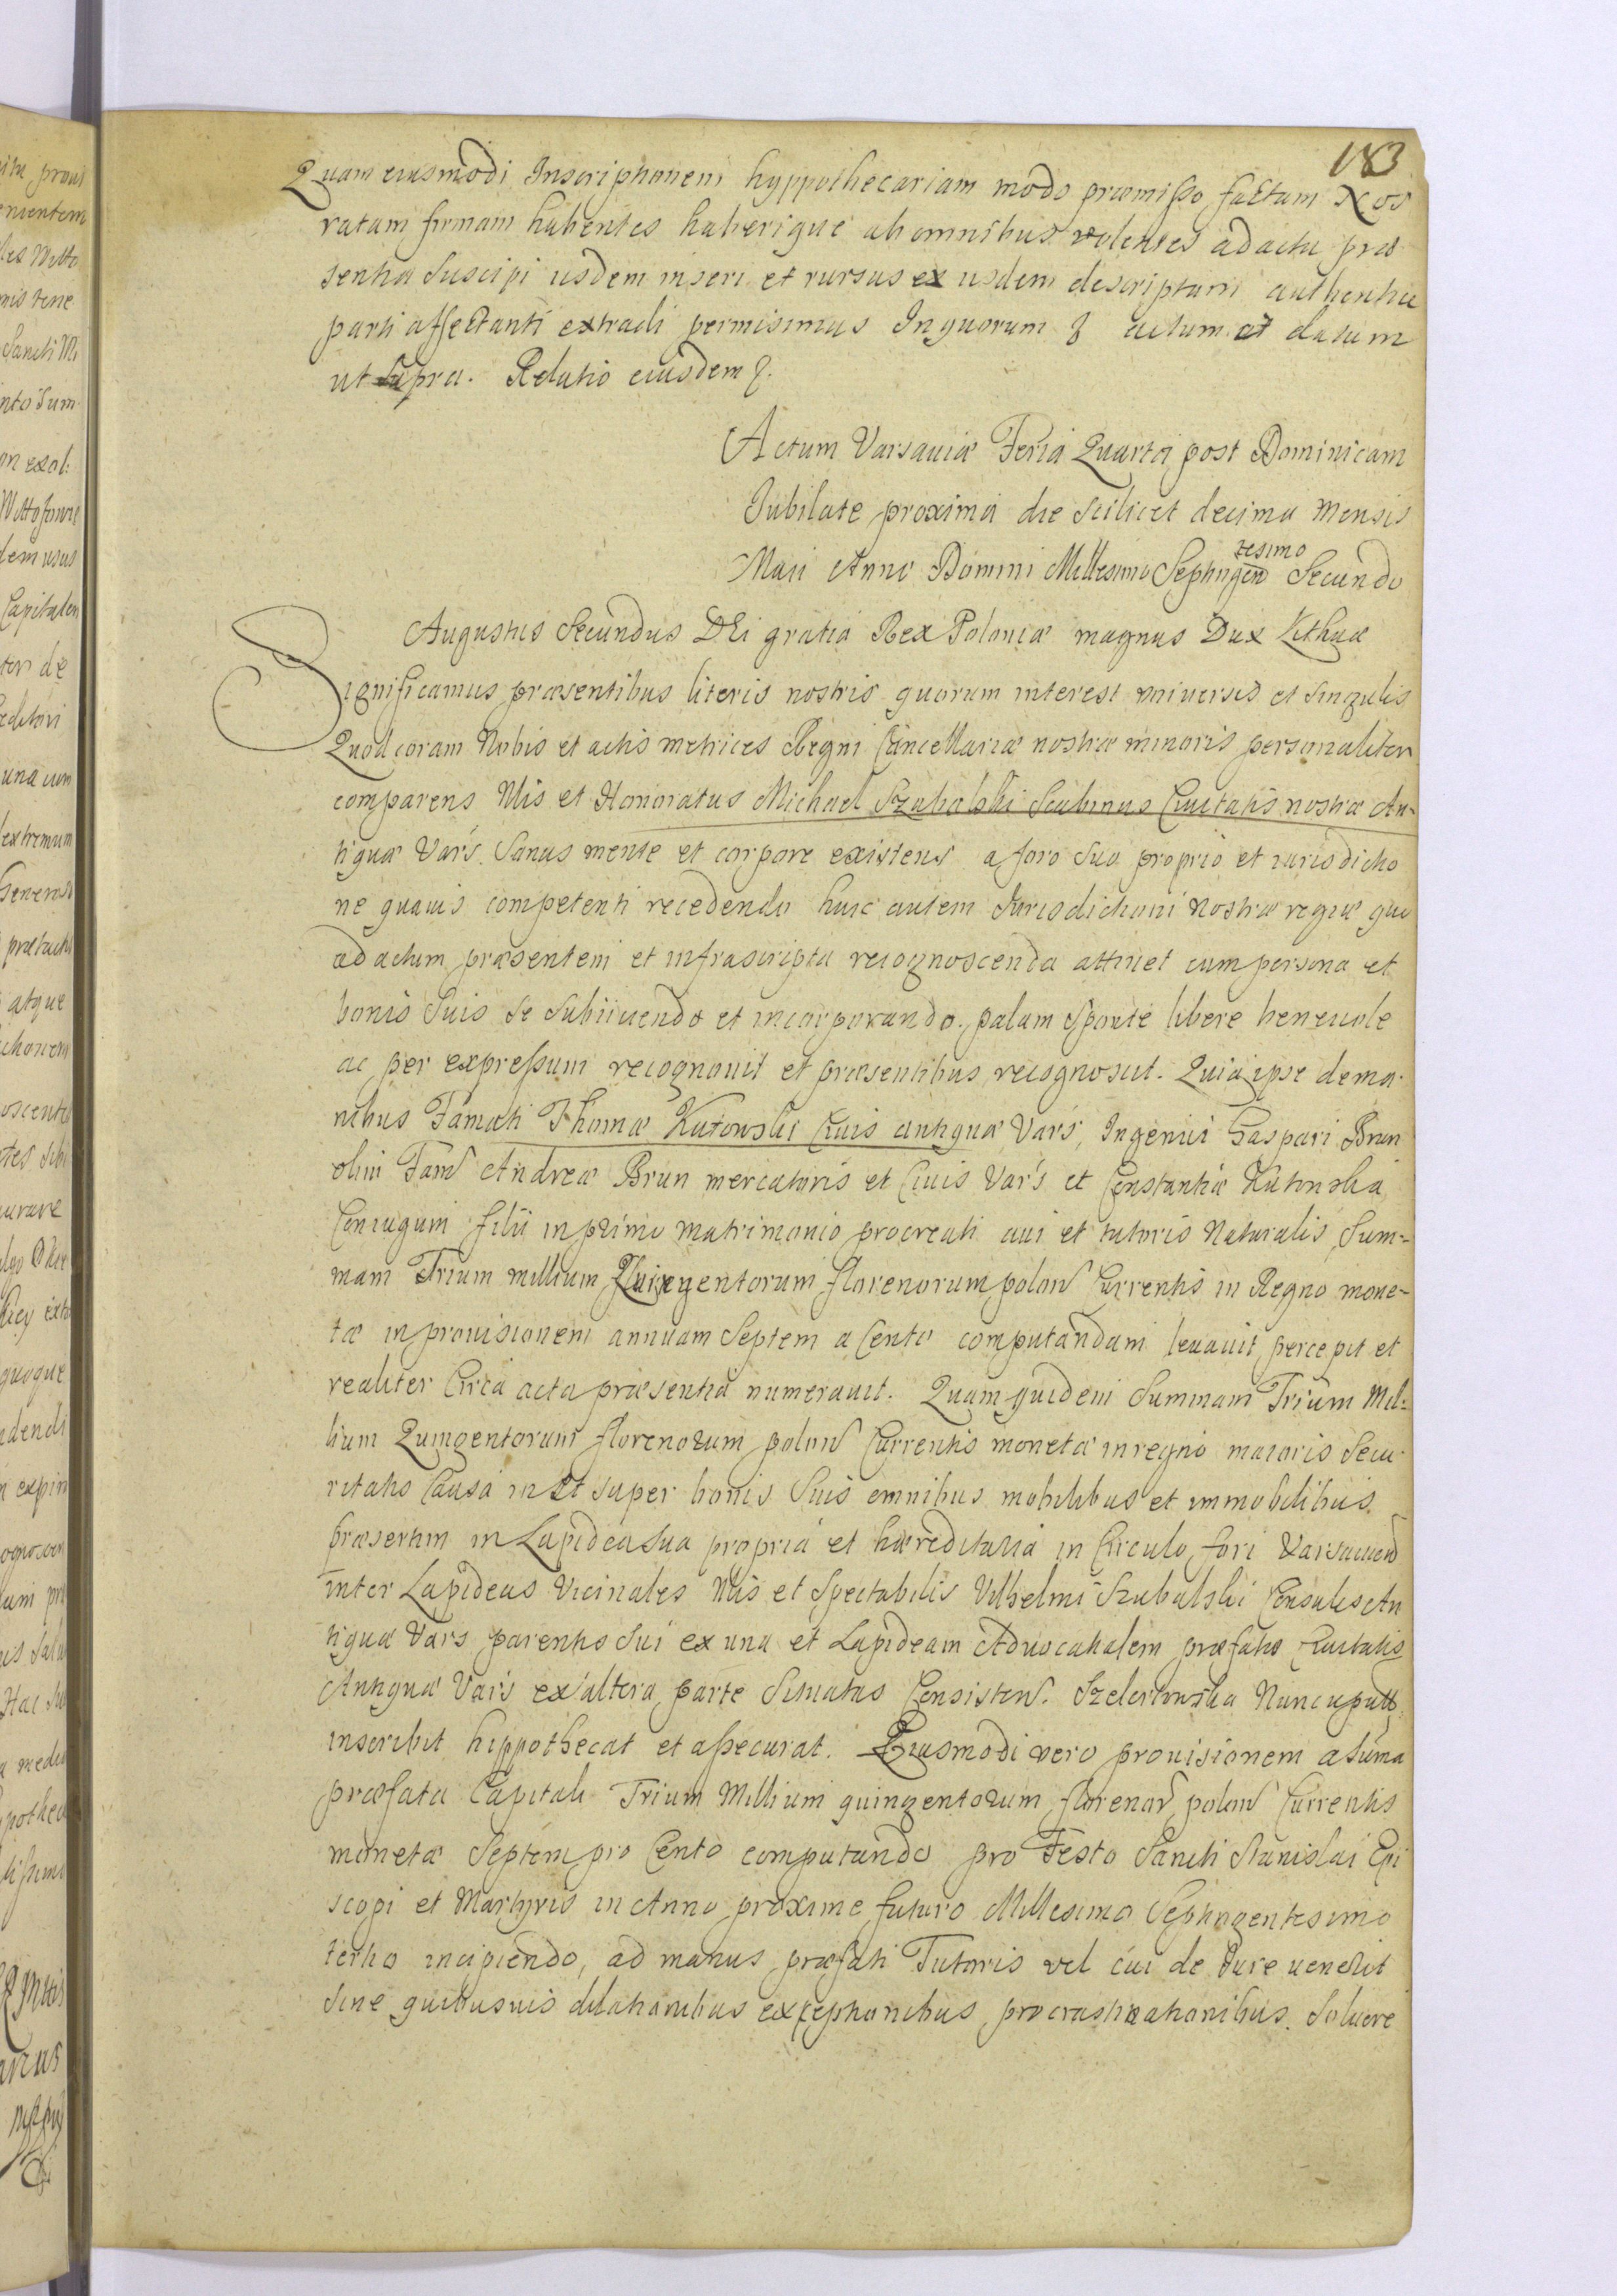 183
Quam eiusmodi Inscriptionem hyppothecariam modo præmisso factam Nos
ratam firmam habentes haberique ab omnibus volentes ad acta præ
sentia suscipi iisdem inseri et rursus ex iisdem descriptam authentice
parti affectanti extradi permisimus In quorum actum et datum
ut supra. Relatio eiusdem
Actum Varsaviæ Feria Quarta post Dominicam
Jubilate proxima die scilicet decima Mensis
Maii Anno Domini Millesimo Septingen tesimo Secundo
Augustus Secundus DEi gratia Rex Poloniæ magnus Dux Lithuæ
Significamus præsentibus literis nostris quorum interest universis et singulis
Quod coram Nobis et actis metrices Regni Cancellariæ nostræ minoris personaliter
comparens Nlis et Honoratus Michael Szubalski Scabinus Civitatis nostræ An-
tiquæ Vars. sanus mente et corpore existens a foro suo proprio et iurisdictio
ne quavis competenti recedendo huic autem Jurisdictioni nostræ regiæ quo
ad actum præsentem et infrascripta recognoscenda attinet cum persona et
bonis suis se subiiciendo et incorporando. palam sponte libere benevole
ac per expressum recognovit et præsentibus recognoscit. Quia ipse de ma-
nibus Famati Thomæ Kutowski Civis antiquæ Vars, Ingenui Gaspari Brun
olim Fam Andreæ Brun mercatoris et Civis Vars et Constantiæ Kutowska
Coniugum filii in primo matrimonio procreati avi et tutoris Naturalis Sum-
mam Trium millium Quingentorum florenorum polon Currentis in Regno mone-
tæ in provisionem annuam Septem a Cento computandam levavit, percepit et
realiter Circa acta præsentia numeravit. Quam quidem Summam Trium Mil-
lium Quingentorum florenorum polon Currentis monetæ in regno maioris Secu-
ritatis Causa in Et super bonis suis omnibus mobilibus et immobilibus
præsertim in Lapidea sua propria et hæreditaria in Circulo fori Varsavien
inter Lapideas Vicinales Nlis et Spectabilis Vilhelmi Szubalski Consulis An
tiquæ Vars parentis sui ex una et Lapideam Advocatialem præfatæ Civitatis
Antiquæ Vars ex altera parte situatas Consisten. Nuncupatt
inscribit hippothecat et assecurat. Eiusmodi vero provisionem a suma
præfata Capitali Trium Millium quingentorum florenor polon Currentis
monetæ Septem pro Cento computando pro Festo Sancti Stanislai Epi
scopi et Martyris in Anno proxime futuro Millesimo Septingentesimo
tertio incipiendo, ad manus præfati Tutoris vel cui de Iure venerit
sine quibusvis dilationibus exceptionibus procrastinationibus. Solvere